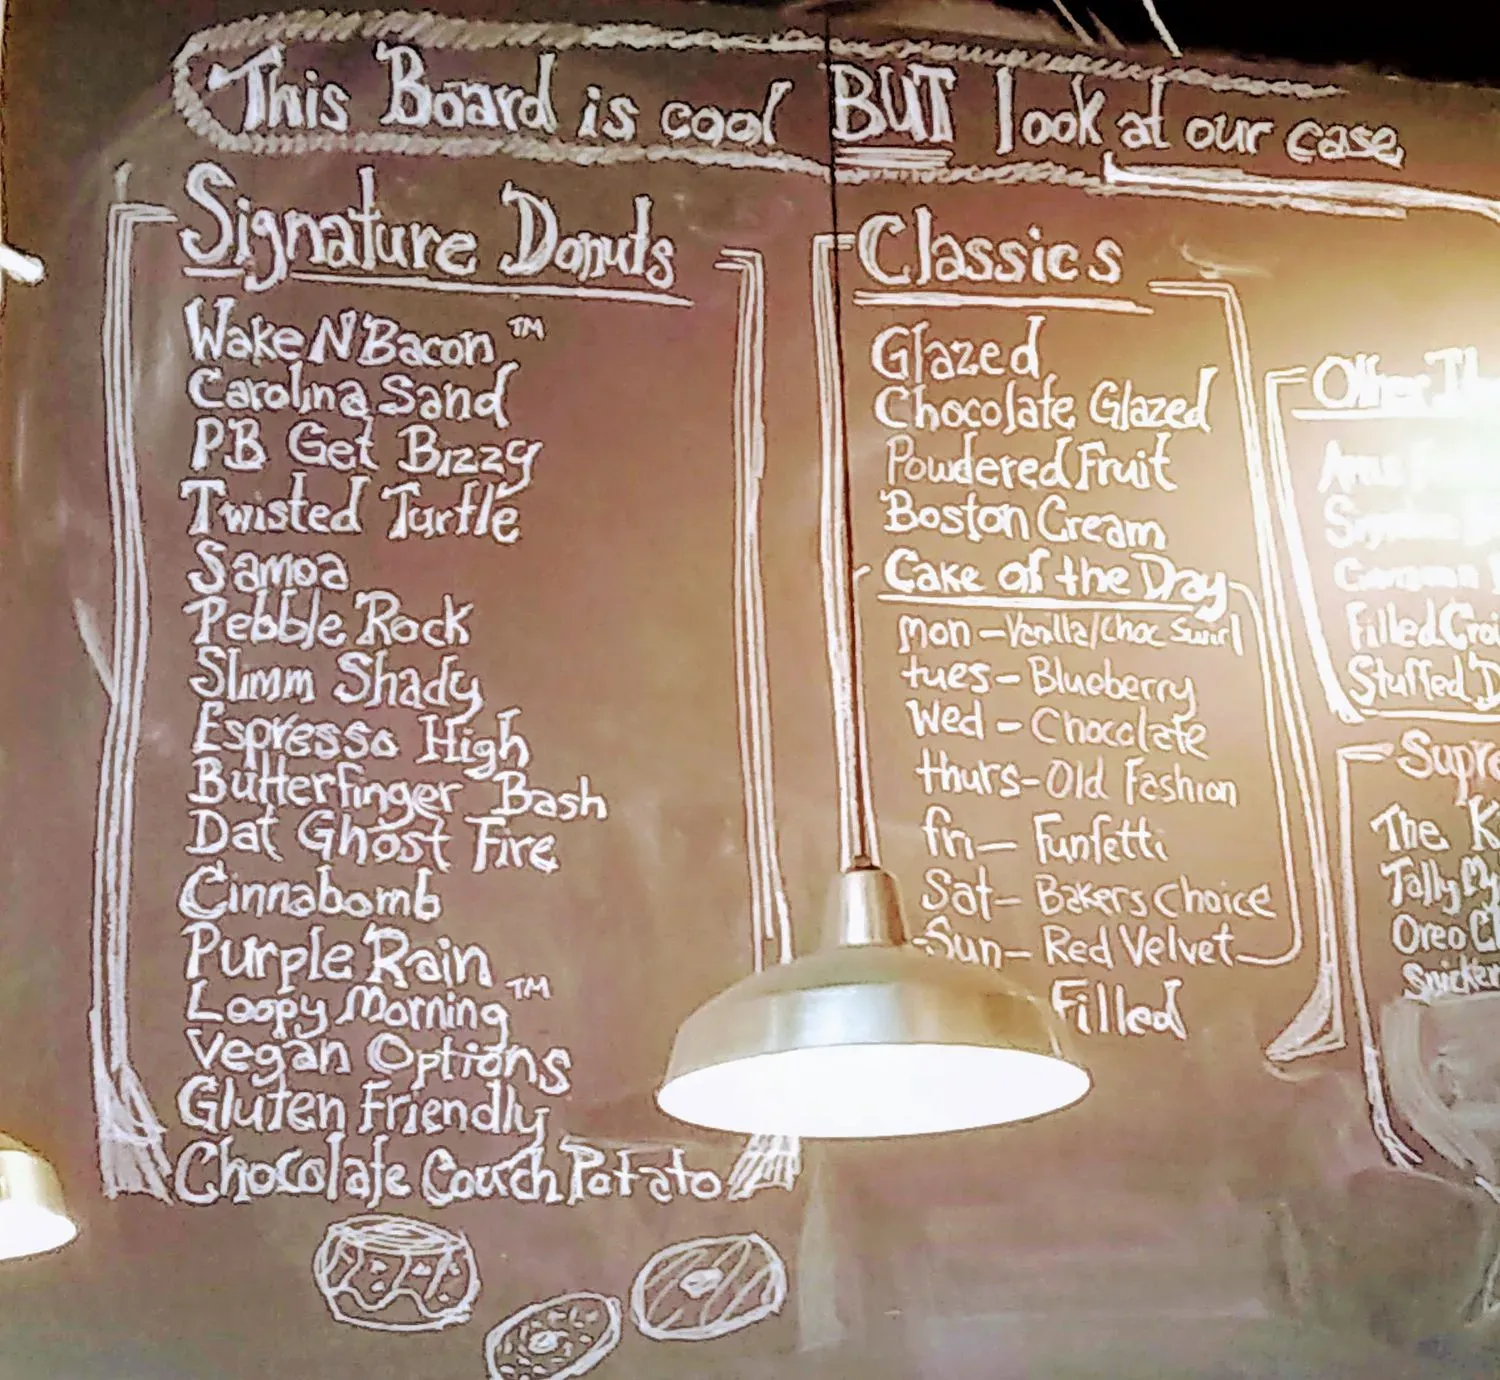 This Board is cool BUT look at our case
Signature Donuts
Wake N' Bacon ™
Carolina Sand
PB Get Bizzy
Twisted Turtle
Samoa
Pebble Rock
Slimm Shady
Espresso High
Butterfinger Bash
Dat Ghost Fire
Cinnabomb
Purple Rain
Loopy Morning ™
Vegan Options
Gluten Friendly
Chocolate Couch Potato
Classics
Glazed
Chocolate Glazed
Powdered Fruit
Boston Cream
Cake of the Day
Mon - Vanilla/Choc Swirl
tues - Blueberry
Wed - Chocolate
thurs - Old Fashion
fri - Funfetti
Sat - Bakers Choice
Sun - Red Velvet
Filled
Other
Filled
Stuffed
The
Tally
Oreo